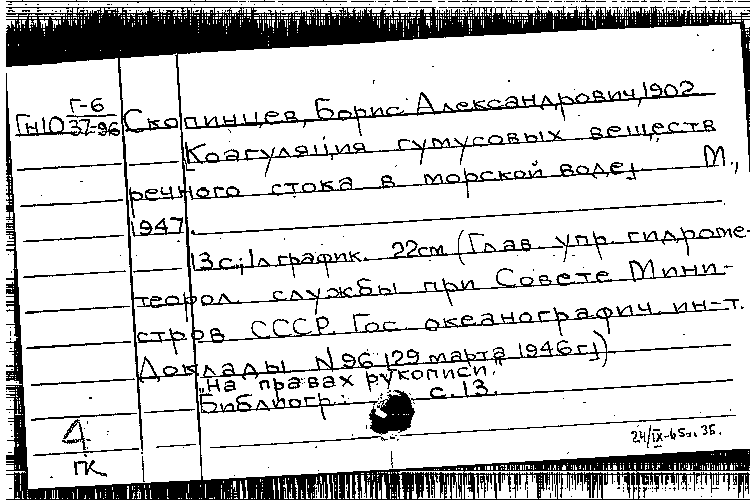 Г-6
ГН10 37-96 Скопинцев, Борис Александрович, 1902
Коагуляция гумусовых веществ
речного стока в морской воде. М.,
1947.
13с.; 1л график. 22см (Глав. упр. гидроме-
теорол. службы при Совете Мини-
стров СССР. Гос. океанографич. ин-т.
Доклады N96 29 марта 1946г.)
"На правах рукописи."
Библиогр.: с. 13.
4
ГК
24/IX-65г.